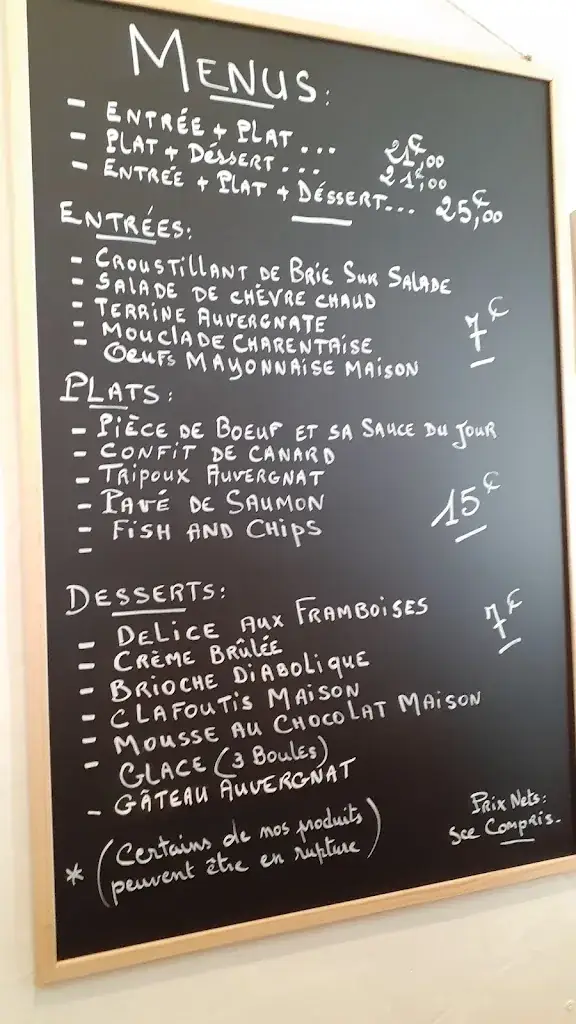 MENUS:
- ENTRÉE + PLAT... 21€,00
- PLAT + DÉSSERT... 21€,00
- ENTRÉE + PLAT + DÉSSERT... 25€,00
ENTRÉES:
- CROUSTILLANT DE BRIE SUR SALADE
- SALADE DE CHÈVRE CHAUD
- TERRINE AUVERGNATE
- MOUCLADE CHARENTAISE 7€
- OEUFS MAYONNAISE MAISON
PLATS:
- PIÈCE DE BOEUF ET SA SAUCE DU JOUR
- CONFIT DE CANARD
- TRIPOUX AUVERGNAT
- PAVÉ DE SAUMON 15€
- FISH AND CHIPS
-
DESSERTS:
- DELICE AUX FRAMBOISES 7€
- CRÈME BRÛLÉE
- BRIOCHE DIABOLIQUE
- CLAFOUTIS MAISON
- MOUSSE AU CHOCOLAT MAISON
- GLACE (3 BOULES)
- GÂTEAU AUVERGNAT
* (Certains de nos produits
peuvent être en rupture)
Prix Nets:
Sce Compris.